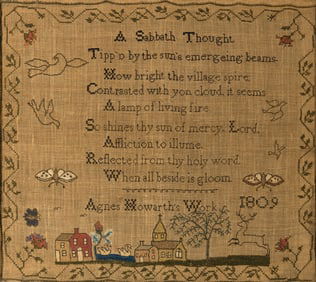 A Sabbath Thought
Tipp'd by the sun's emergeing beams.
How bright the village spire;
Contrasted with yon cloud, it seems
A lamp of living fire
So shines thy sun of mercy, Lord,
Affliction to illume.
Reflected from thy holy word.
When all beside is gloom.
Agnes Howarth's Work 1809